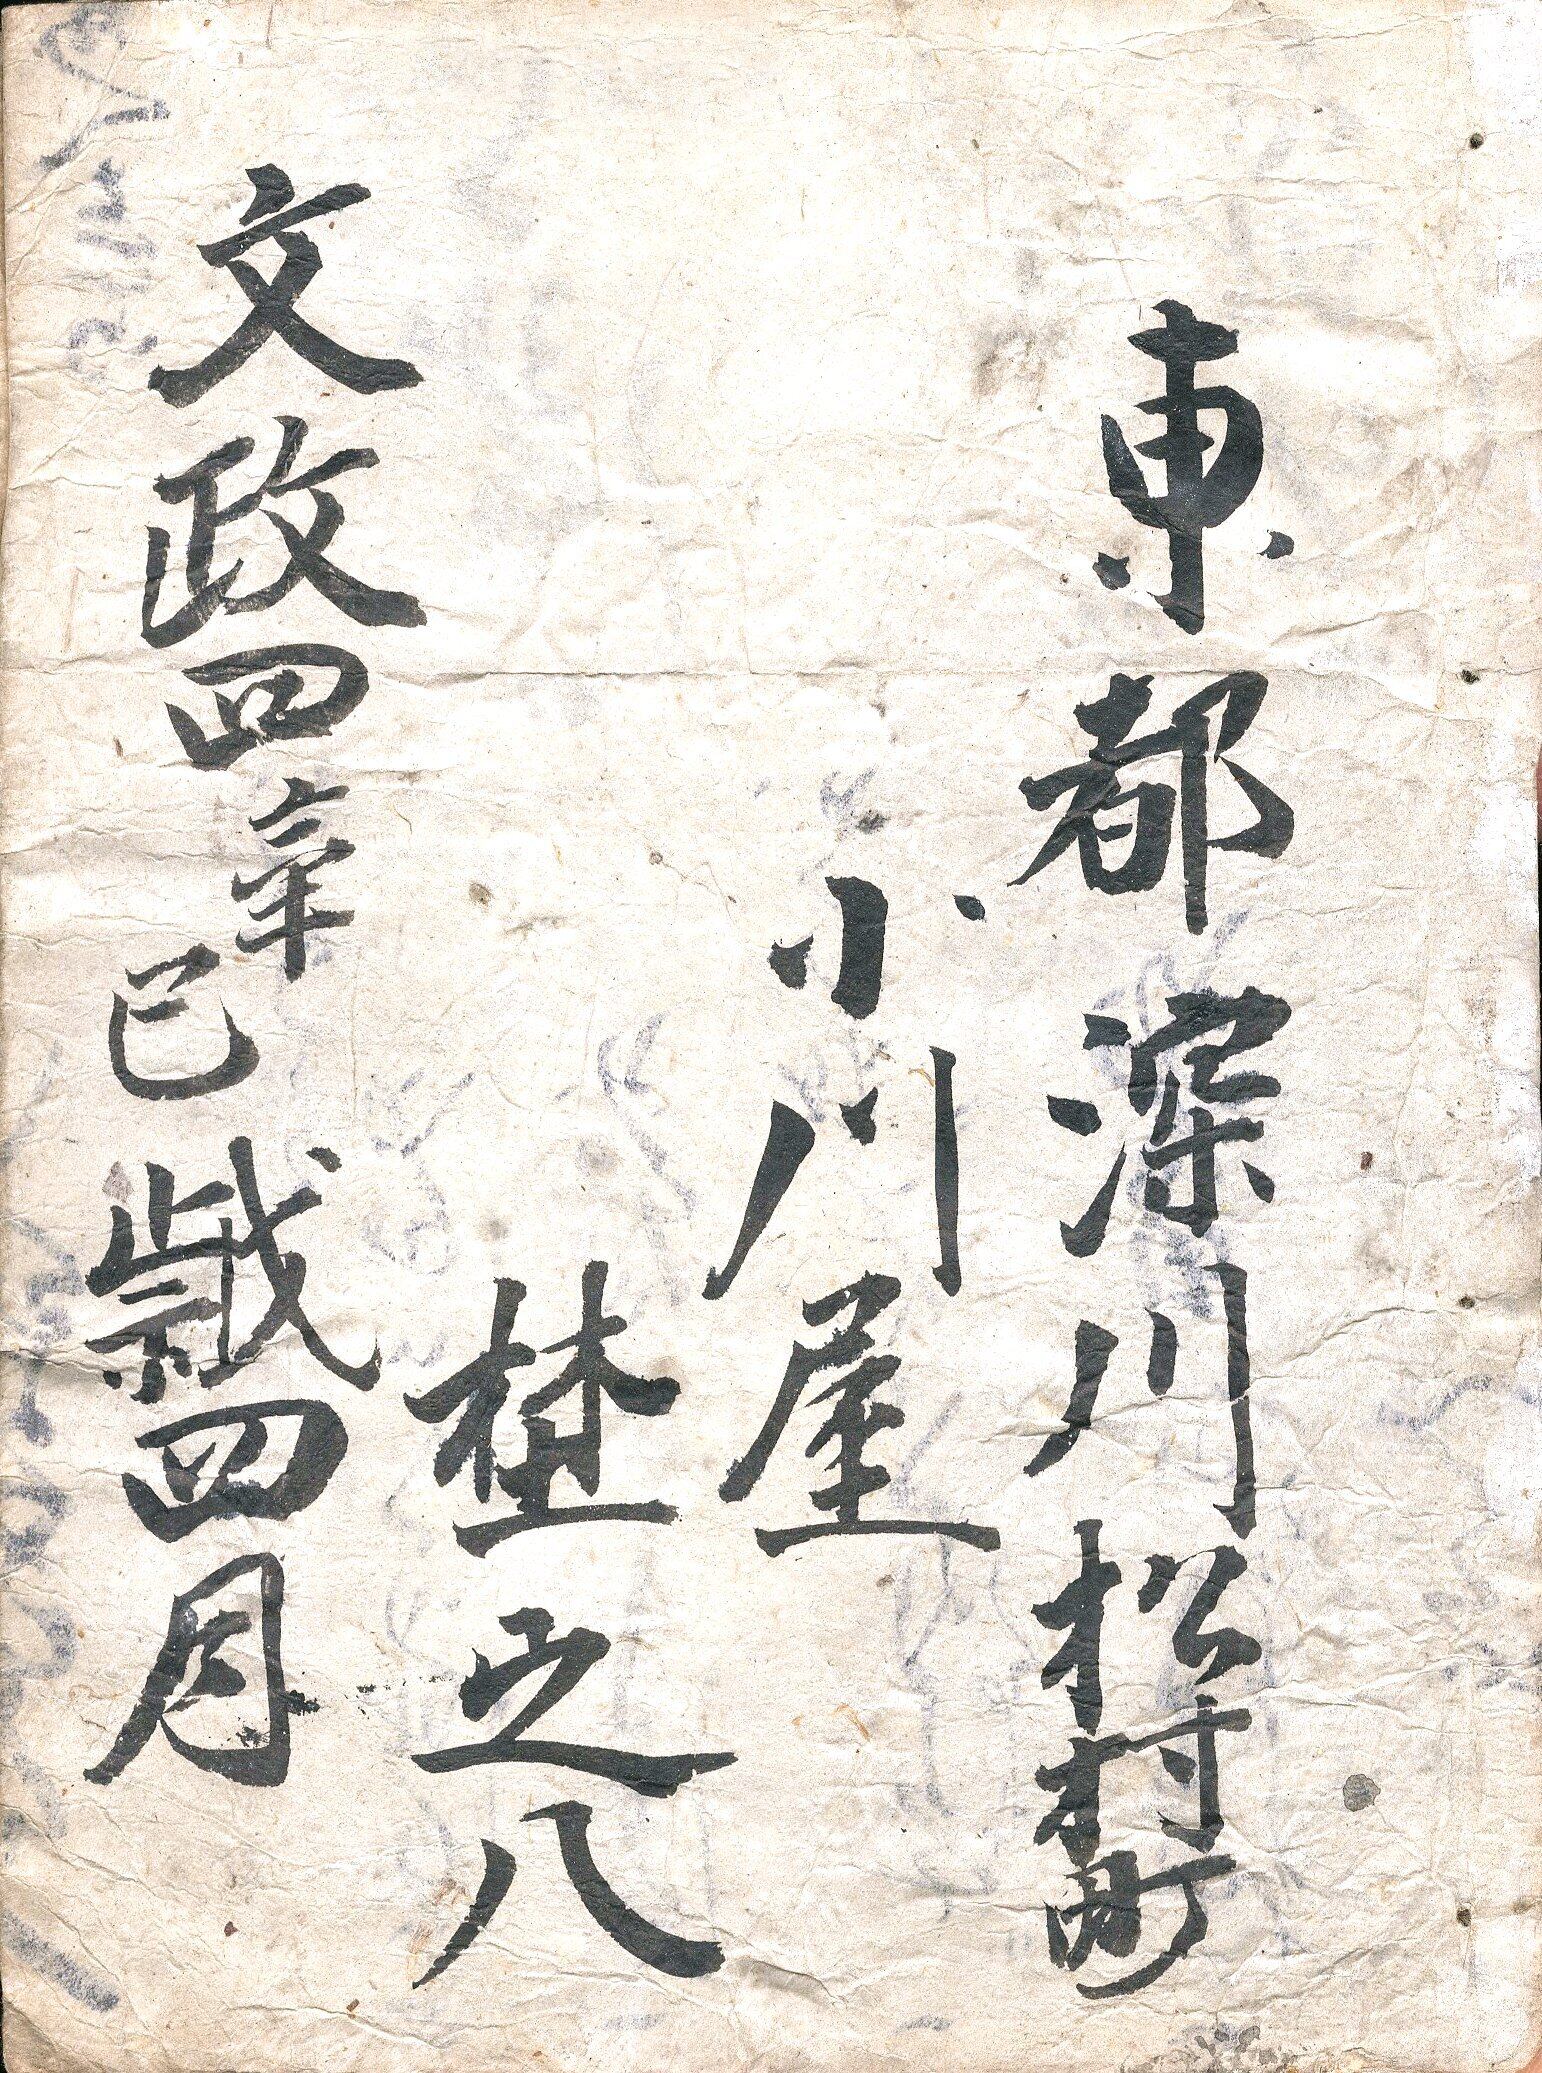 東都深川松村町
小川屋
桂之八
文政四辛巳歳四月